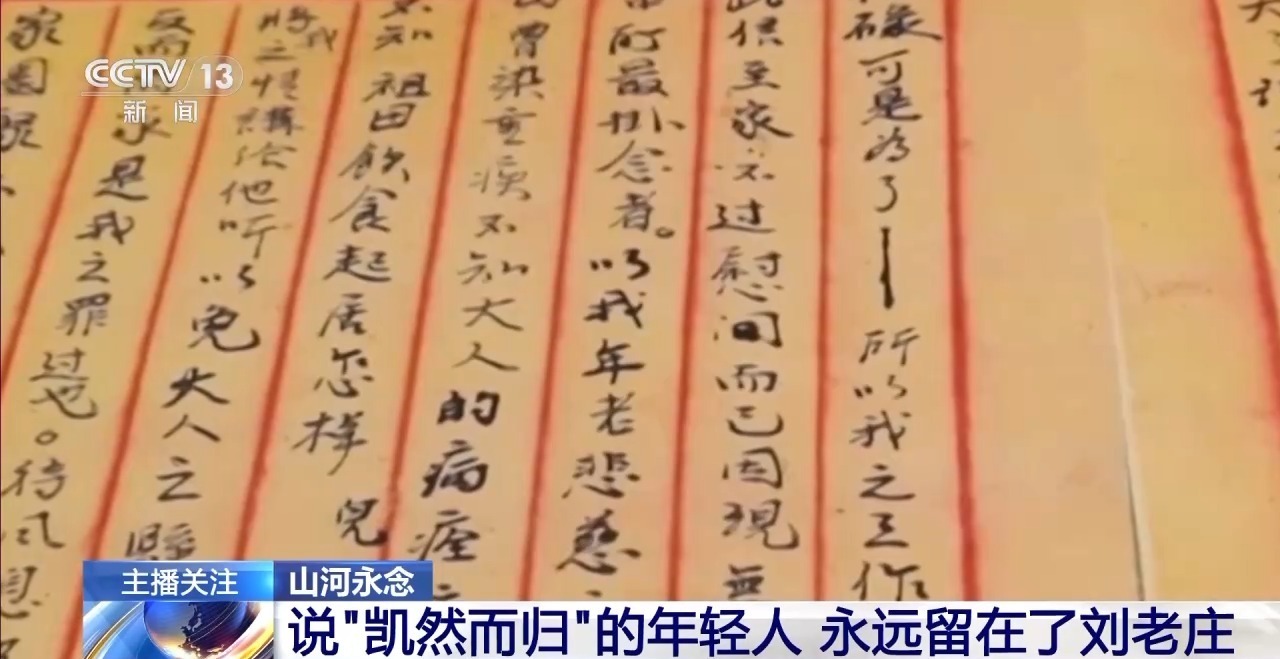 CCTV 13
新闻
碌可是為了—所以我之工作
此信至家不过慰问而已因現無
所最掛念者。以我年老悲慈
曾染重疾不知大人的病痊
不知祖田飲食起居怎样 兒
將我之情講给他听以免大人之懸
反而是我之罪过也。待风息
家園
主播关注
山河永念
说"凯然而归"的年轻人 永远留在了刘老庄